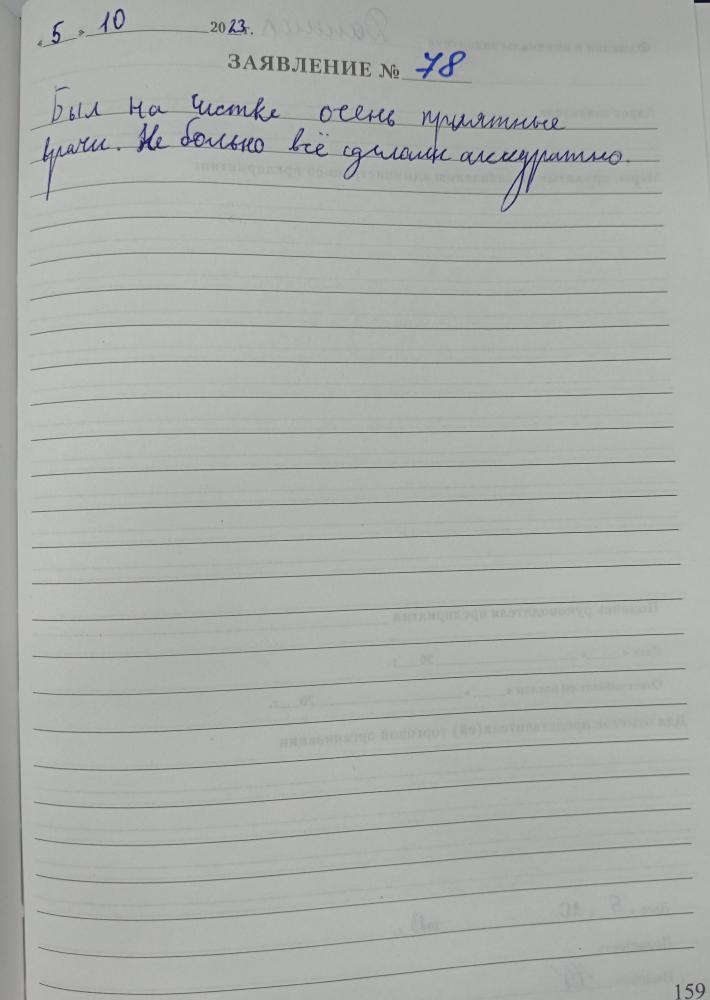 « 5 » 10 2023 г.
ЗАЯВЛЕНИЕ № 78
Был на чистке очень приятные
врачи. Не больно всё сделали аккуратно.
159